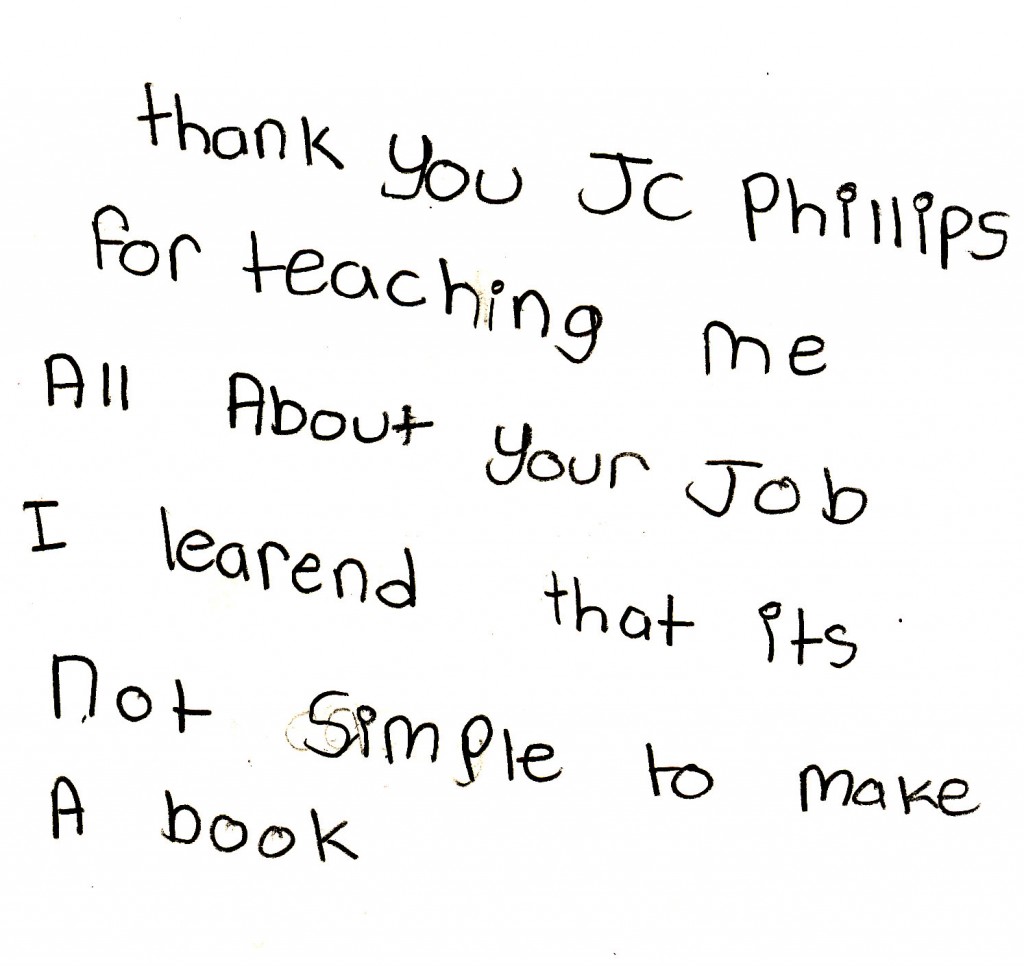 thank you JC Phillips
for teaching me
All About your Job
I learend that its
not simple to make
A book